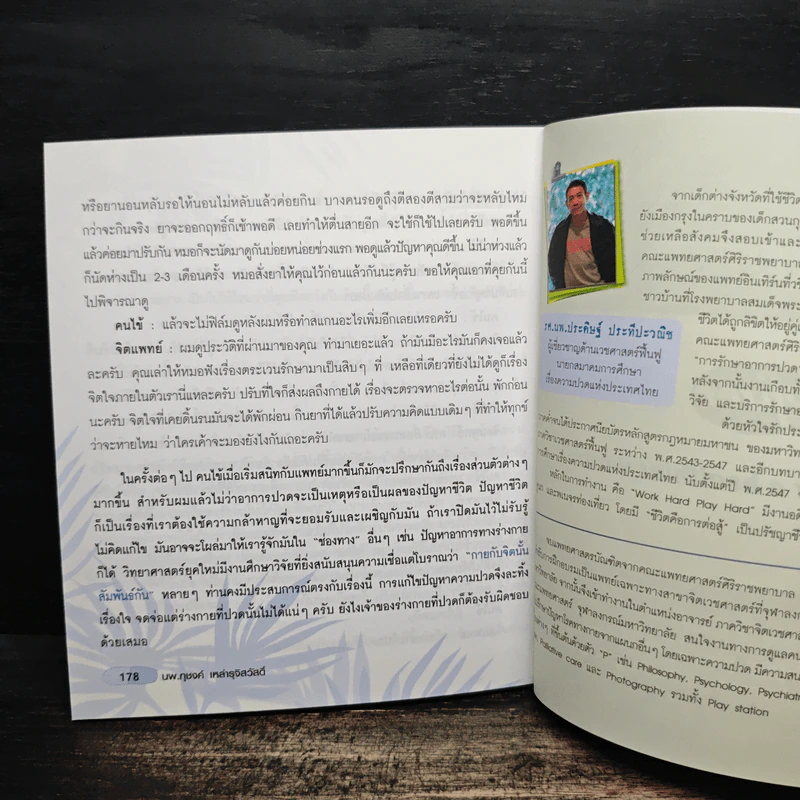 หรือยานอนหลับรอให้นอนไม่หลับแล้วค่อยกิน บางคนรอดูถึงตีสองตีสามว่าจะหลับไหม
กว่าจะกินจริง ยาจะออกฤทธิ์ก็เช้าพอดี เลยทำให้ตื่นสายอีก จะใช้ก็ใช้ไปเลยครับ พอดีขึ้น
แล้วค่อยมาปรับกัน หมอก็จะนัดมาดูกันบ่อยหน่อยช่วงแรก พอดูแล้วปัญหาคุณดีขึ้น ไม่น่าห่วงแล้ว
ก็นัดห่างเป็น 2-3 เดือนครั้ง หมอสั่งยาให้คุณไว้ก่อนแล้วกันนะครับ ขอให้คุณเอาที่คุยกันนี้
ไปพิจารณาดู
คนไข้ : แล้วจะไม่ฟิล์มดูหลังผมหรือทำสแกนอะไรเพิ่มอีกเลยเหรอครับ
จิตแพทย์ : ผมดูประวัติที่ผ่านมาของคุณ ทำมาเยอะแล้ว ถ้ามันมีอะไรมันก็คงเจอแล้ว
ละครับ คุณเล่าให้หมอฟังเรื่องตระเวนรักษามาเป็นสิบๆ ที่ เหลือที่เดียวที่ยังไม่ได้ดูก็เรื่อง
จิตใจภายในตัวเรานี่แหละครับ ปรับที่ใจก็ส่งผลถึงกายได้ เรื่องจะตรวจหาอะไรต่อนั้น พักก่อน
นะครับ จิตใจที่เคยดิ้นรนมันจะได้พักผ่อน กินยาที่ได้แล้วปรับความคิดแบบเดิมๆ ที่ทำให้ทุกข์
ว่าจะหายไหม ว่าใครเค้าจะมองยังไงกันเถอะครับ
ในครั้งต่อๆ ไป คนไข้เมื่อเริ่มสนิทกับแพทย์มากขึ้นก็มักจะปรึกษากันถึงเรื่องส่วนตัวต่างๆ
มากขึ้น สำหรับผมแล้วไม่ว่าอาการปวดจะเป็นเหตุหรือเป็นผลของปัญหาชีวิต ปัญหาชีวิต
ก็เป็นเรื่องที่เราต้องใช้ความกล้าหาญที่จะยอมรับและเผชิญกับมัน ถ้าเราปิดมันไว้ไม่รับรู้
ไม่คิดแก้ไข มันอาจจะโผล่มาให้เรารู้จักมันใน "ช่องทาง" อื่นๆ เช่น ปัญหาอาการทางร่างกาย
ก็ได้ วิทยาศาสตร์ยุคใหม่มีงานศึกษาวิจัยที่ยิ่งสนับสนุนความเชื่อแต่โบราณว่า "กายกับจิตนั้น
สัมพันธ์กัน" หลายๆ ท่านคงมีประสบการณ์ตรงกับเรื่องนี้ การแก้ไขปัญหาความปวดจึงละทิ้ง
เรื่องใจ จดจ่อแต่ร่างกายที่ปวดนั้นไม่ได้แน่ๆ ครับ ยังไงเจ้าของร่างกายที่ปวดก็ต้องรับผิดชอบ
ด้วยเสมอ
178 นพ.ภุชงค์ เหล่ารุจิสวัสดิ์
รศ.นพ.ประดิษฐ์ ประทีปะวณิช
ผู้เชี่ยวชาญด้านเวชศาสตร์ฟื้นฟู
นายกสมาคมการศึกษา
เรื่องความปวดแห่งประเทศไทย
จากเด็กต่างจังหวัดที่ใช้ชีวิต
ยังเมืองกรุงในคราบของเด็กสวนกุ
ช่วยเหลือสังคมจึงสอบเข้าและ
คณะแพทยศาสตร์ศิริราชพยาบาล
ภาพลักษณ์ของแพทย์อินเทิร์นที่
ชาวบ้านที่โรงพยาบาลสมเด็จพระ
ชีวิตได้ถูกลิขิตให้อยู่คู่
คณะแพทยศาสตร์ศิริ
"การรักษาอาการปวด
หลังจากนั้นงานเกือบทั้
วิจัย และบริการรักษา
ด้วยหัวใจรักประ
ได้ประกาศนียบัตรหลักสูตรกฎหมายมหาชน ของมหาวิท
ภาควิชาเวชศาสตร์ฟื้นฟู ระหว่าง พ.ศ.2543-2547 และอีกบทบา
การศึกษาเรื่องความปวดแห่งประเทศไทย นับตั้งแต่ปี พ.ศ.2547
หลักในการทำงาน คือ "Work Hard Play Hard" มีงานอดิ
และพเนจรท่องเที่ยว โดยมี "ชีวิตคือการต่อสู้" เป็นปรัชญาชี
จบแพทยศาสตรบัณฑิตจากคณะแพทยศาสตร์ศิริราชพยาบาล
การฝึกอบรมเป็นแพทย์เฉพาะทางสาขาจิตเวชศาสตร์ที่จุฬาลงก
จากนั้นจึงเข้าทำงานในตำแหน่งอาจารย์ ภาควิชาจิตเวชศา
แพทยศาสตร์ จุฬาลงกรณ์มหาวิทยาลัย สนใจงานทางการดูแลคน
ปัญหาโรคทางกายจากแผนกอื่นๆ โดยเฉพาะความปวด มีความสน
ที่ขึ้นต้นด้วยตัว "P" เช่น Philosophy, Psychology, Psychiat
Palliative care และ Photography รวมทั้ง Play station